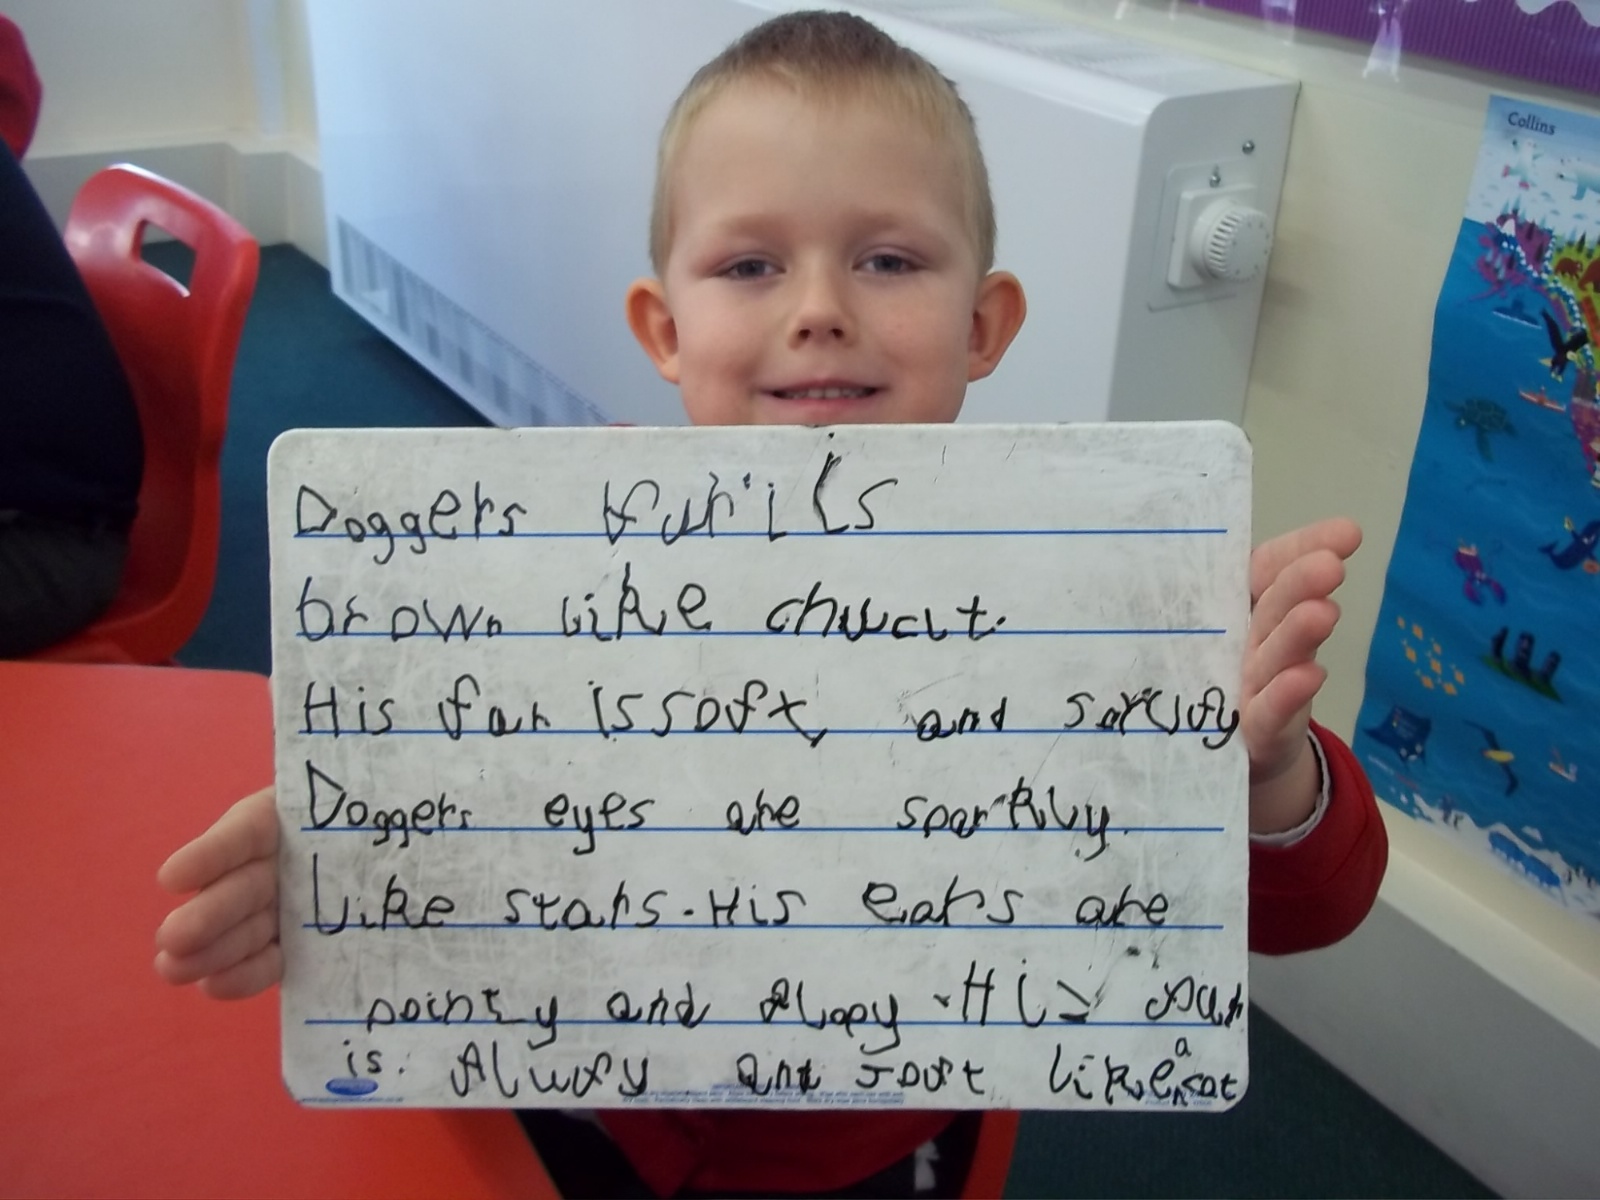 Collins
Doggers fur is
brown like
His fur is soft, and
Doggers eyes are sparkly.
Like stars. His ears are
pointy and flopy. His fur
is. fluufy and soft like a